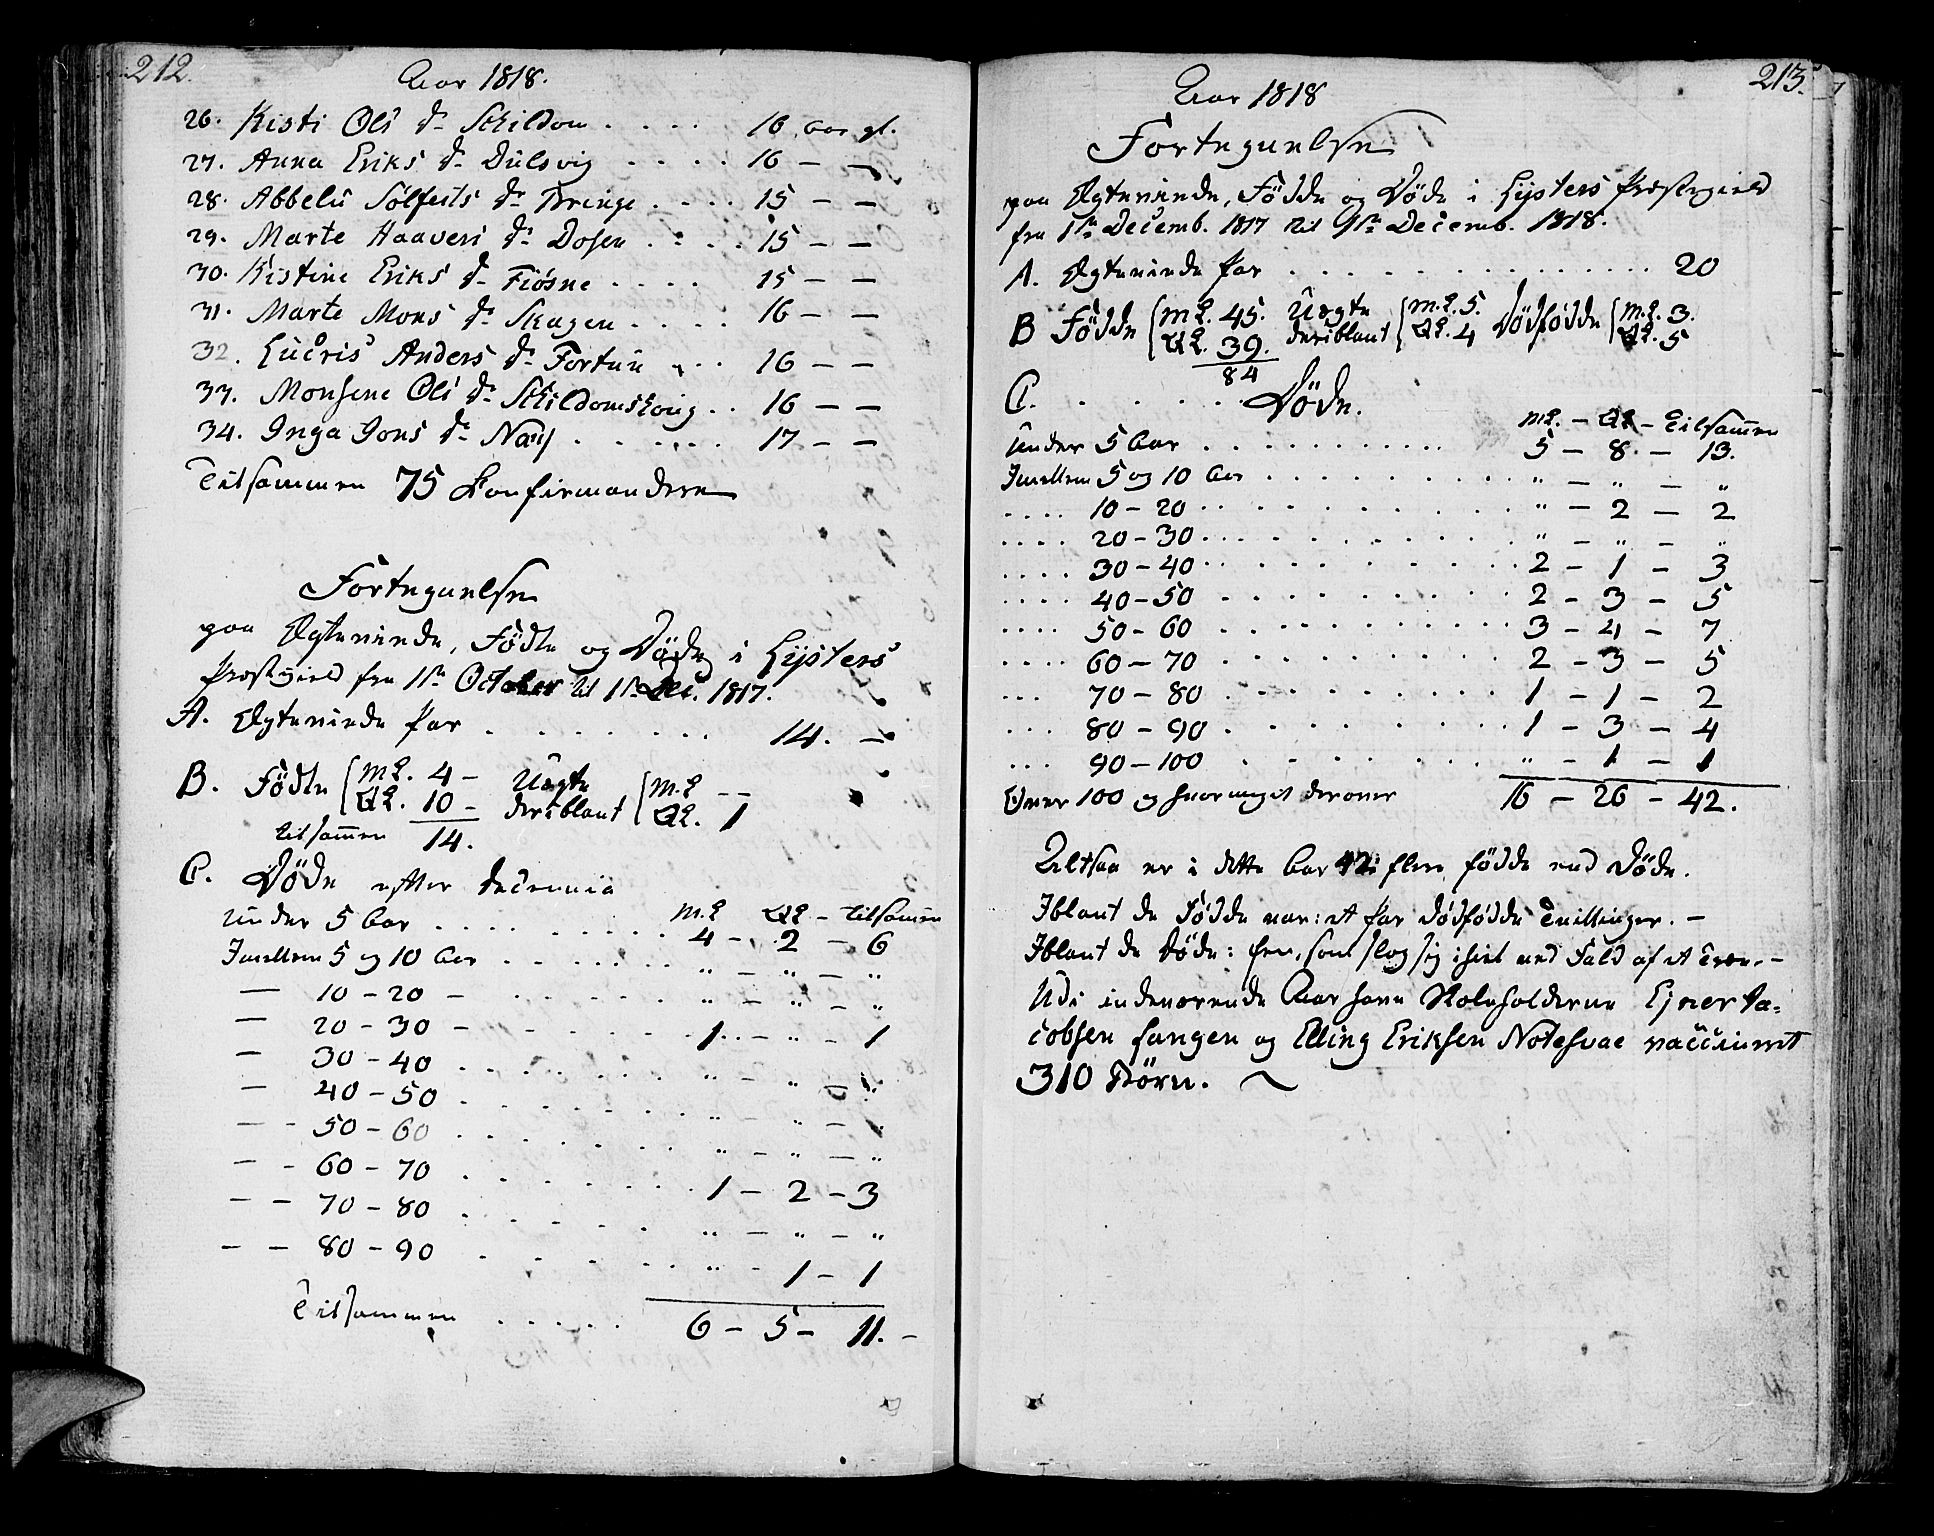 212.
Aar 1818.
26. Kisti Ols Dr Schildom . . . . 16 aar gl.
27. Anna Eriks Dr Dulsvig . . . . 16 — —
28. Abbelu Sølfests Dr Bringe . . . . 15 — —
29. Marte Haavers Dr Dosen . . . . 15 — —
30. Kistine Eriks Dr Fiøsne . . . . 15 — —
31. Marte Mons Dr Skagen . . . . 16 — —
32. Lucris Anders Dr Fortun . . . 16 — —
33. Monsene Ols Dr Schildomskvig . . 16 — —
34. Inga Jons Dr Næs . . . . . 17 — —
Tilsammen 75 Konfirmandere
Fortegnelse
paa Ægteviede, Fødte og Døde i Lysters
Præstegield fra 1ste October til 1ste Dec. 1817.
A. Ægteviede Par . . . . . . . 14. —
B. Fødte { M.K. 4 — Uægte { M.K. — —
Q.K. 10 — deriblant Q.K. 1
tilsammen 14.
C. Døde efter decennia
M.K. Q.K. — tilsammen
under 5 Aar . . . . . . . . 4 — 2 — 6
Imellem 5 og 10 Aar . . . . . . " — " — "
— 10 — 20 — . . . . . . " — " — "
— 20 — 30 — . . . . . . 1 . . — " — 1
— 30 — 40 . . . . . . . " — " — "
— 40 — 50 . . . . . . . " — " — "
— - 50 — 60 . . . . . . . " — " — "
— - 60 — 70 . . . . . . . 1 — 2 — 3
— — 70 — 80 . . . . . . " — " — "
— — 80 — 90 . . . . . . " — 1 — 1
Tilsammen . . . . . 6 — 5 — 11. —
213.
Aar 1818
Fortegnelse
paa Ægteviede, Fødde og Døde i Lysters Præstegield
fra 1ste Decemb. 1817 til 1ste Decemb. 1818.
A. Ægteviede Par . . . . . . . . . . . . . . 20
B Fødde { M.K. 45. Uægte { M.K. 5. Dødfødde { M.K. 3.
Q.K. 39. deriblant Q.K. 4 Q.K. 5
84
C. . . . . . . Døde.
M.K. — Q.K — Tilsammen
Under 5 Aar . . . . . . . . . . 5 — 8. — 13.
Imellem 5 og 10 Aar . . . . . . . . . " — " — "
. . . . 10 — 20 . . . . . . . . . . " — 2 — 2
. . . . 20 — 30 . . . . . . . . . . " — " — "
. . . . 30 — 40 . . . . . . . . . . 2 — 1 — 3
. . . . 40 — 50 . . . . . . . . . . 2 — 3 — 5
. . . . 50 — 60 . . . . . . . . . . 3 — 4 — 7
. . . . 60 — 70 . . . . . . . . . . 2 — 3 — 5
. . . 70 — 80 . . . . . . . . . . 1 — 1 — 2
. . . 80 — 90 . . . . . . . . . . 1 — 3 — 4
. . . 90 — 100 . . . . . . . . . " — 1 — 1
Over 100 og hvor meget derover 16 — 26 — 42.
Altsaa er i dette Aar 42 flere fødde end Døde.
Iblant de Fødde var: et Par dødfødde Tvillinger. —
Iblant de Døde: Een, som slog sig ihiel ved Fald af et Træe. —
Udi indeværende Aar have Medhielperne Ejner Ja-
cobsen Fangen og Elling Eriksen Notesvae vaccineret
310 Børn.